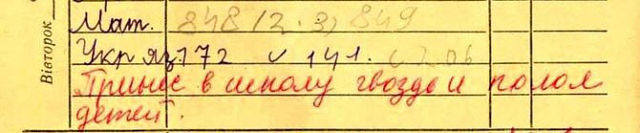 Вівторок
Мат. 848 (2.3) 849
Укр яз. 172 141.
Принес в школу гвозде и полол
детей.